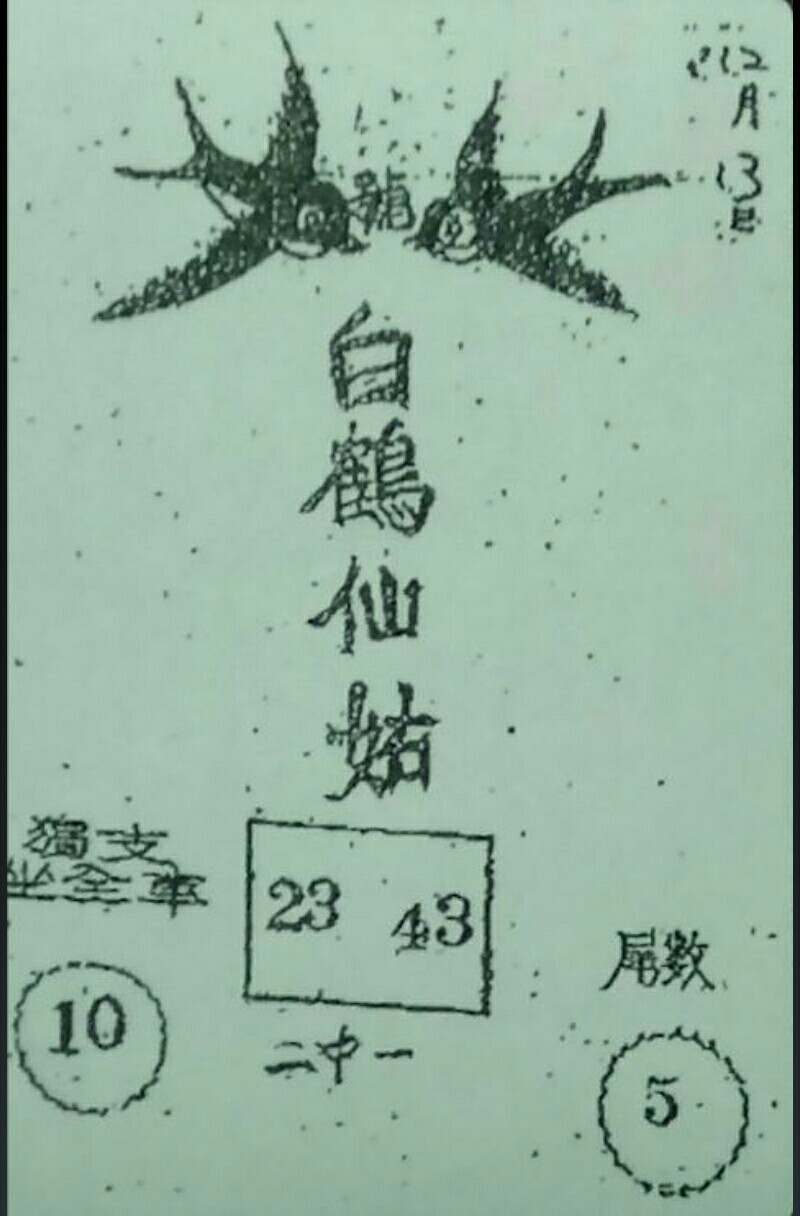 12月13日
號
白鶴仙姑
獨支
坐全車
23 43
二中一
10
尾數
5